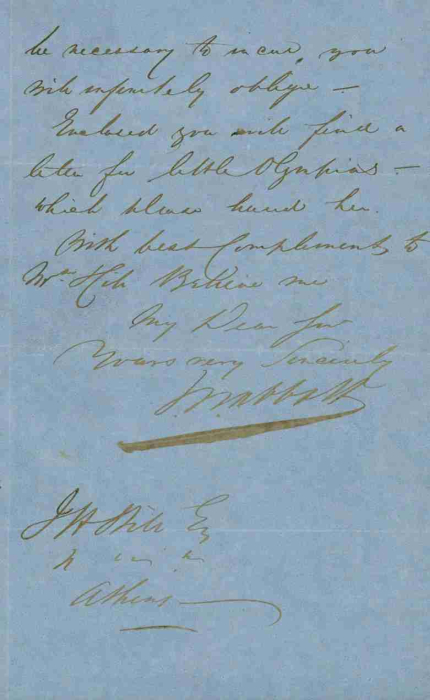 be necessary to incur, you
will infinitely oblige —
Enclosed you will find a
letter for little Olympias —
which please hand her.
With best Complements to
Mrs Hill Believe me
My Dear Sir
Yours very Sincerely
Abbott
J H Hill Esq
Athens